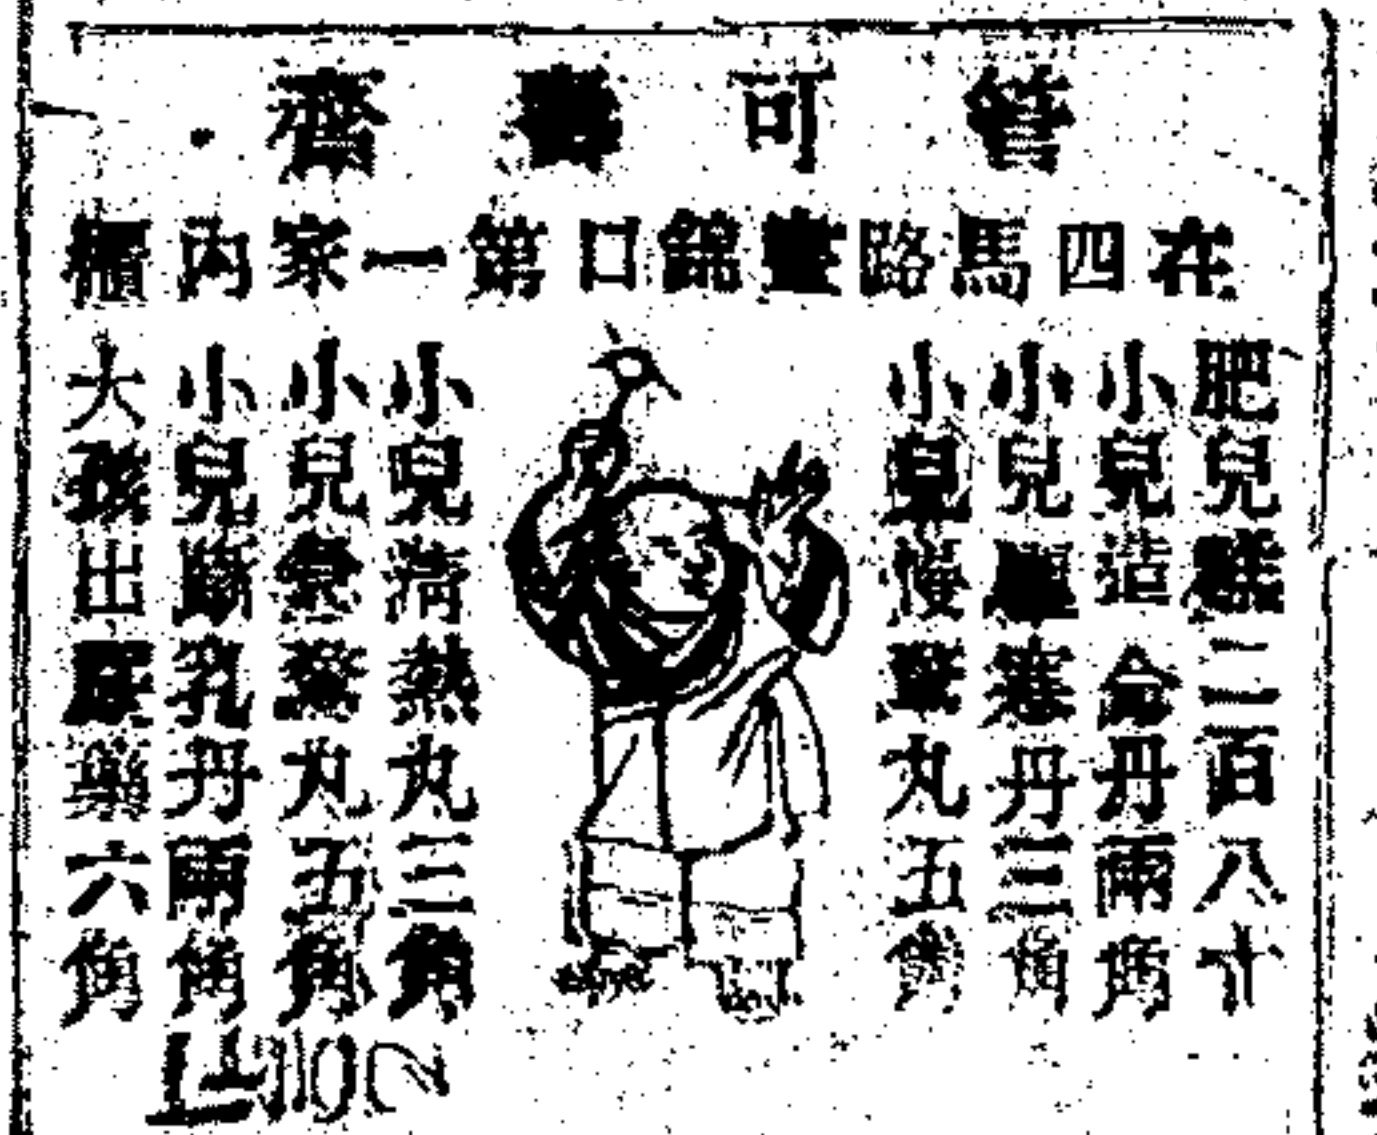 管可壽齋
在四馬路畫錦口第一家內櫃
肥兒糕二百八十
小兒造命丹兩角
小兒驅寒丹三角
小兒慢驚丸五角
小兒清熱丸三角
小兒急驚丸五角
小兒斷乳丹兩角
大孩出牙藥六角